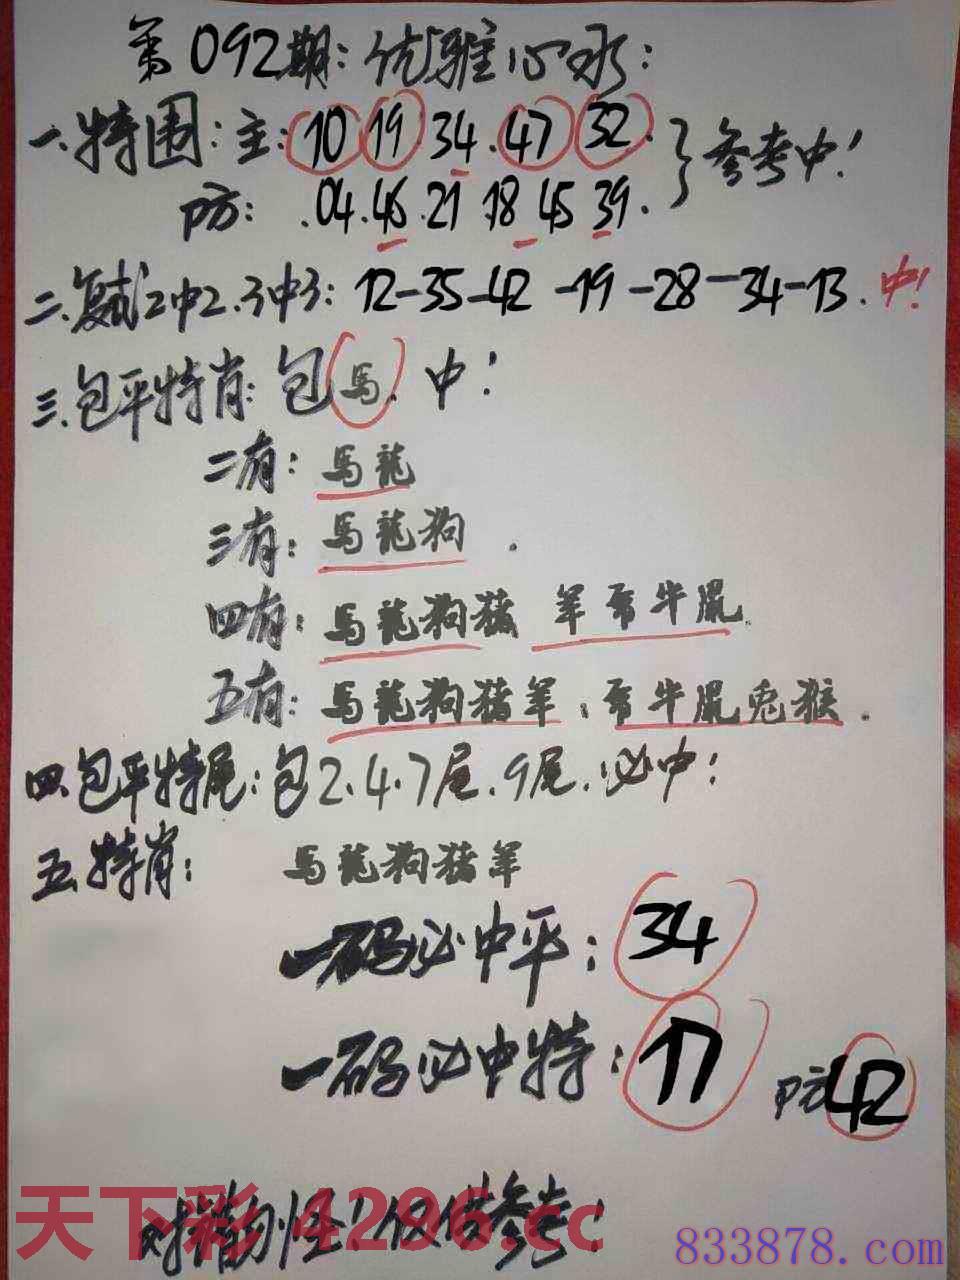 第092期：优雅心水：
一.特围：主：10 19 34.47 32.
防：.04.46.21 18 45 39.
}参考中！
二.复试2中2.3中3：12-35-42-19-28-34-13.中！
三.包平特肖：包馬.中！
二有：馬龍
三有：馬龍狗.
四有：馬龍狗猪 羊 牛鼠.
五有：馬龍狗猪羊、 牛鼠兔猴.
四.包平特尾：包2.4.7尾.9尾.必中！
五.特肖：馬龍狗猪羊
一码必中平：34
一码必中特：17 防42
天下彩 4296.cc
对错勿怪！仅供参考！
833878.com